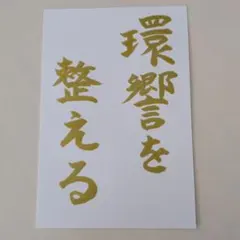 環響を
整える